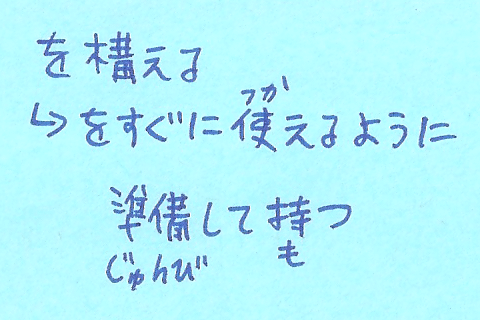 を構える
↳をすぐに使えるように
つか
準備して持つ
じゅんび も